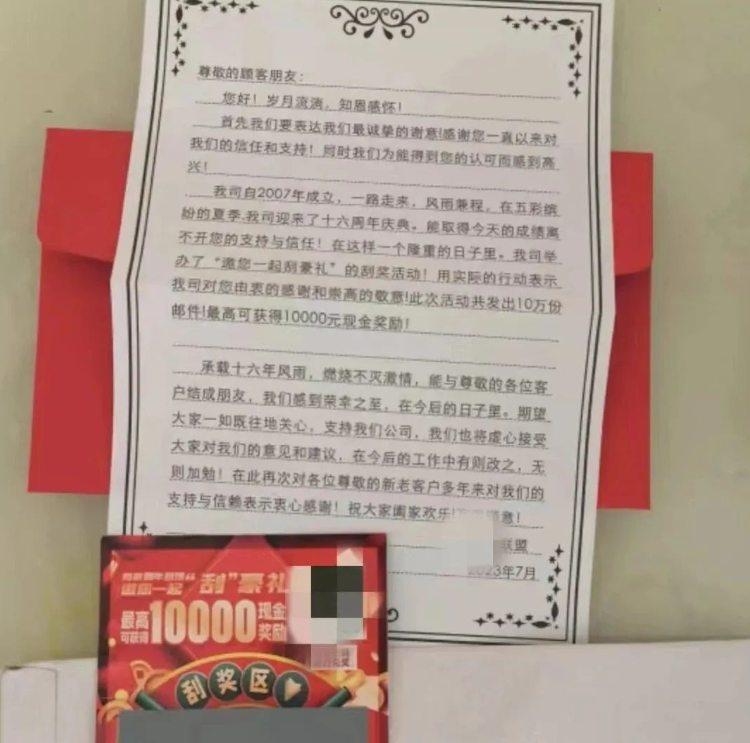 尊敬的顾客朋友：
您好！岁月流淌，知恩感怀！
首先我们要表达我们最诚挚的谢意!感谢您一直以来对
我们的信任和支持！同时我们为能得到您的认可而感到高
兴！
我司自2007年成立，一路走来，风雨兼程，在五彩缤
纷的夏季.我司迎来了十六周年庆典。能取得今天的成绩离
不开您的支持与信任！在这样一个隆重的日子里。我司举
办了“邀您一起刮豪礼”的刮奖活动！用实际的行动表示
我司对您由衷的感谢和崇高的敬意!此次活动共发出10万份
邮件!最高可获得10000元现金奖励！
承载十六年风雨，燃烧不灭激情，能与尊敬的各位客
户结成朋友，我们感到荣幸之至，在今后的日子里。期望
大家一如既往地关心，支持我们公司，我们也将虚心接受
大家对我们的意见和建议，在今后的工作中有则改之，无
则加勉！在此再次对各位尊敬的新老客户多年来对我们的
支持与信赖表示衷心感谢！祝大家阖家欢乐!意！
联盟
2023年7月
邀您一起“刮”豪礼
最高可获得10000现金奖励
刮奖区